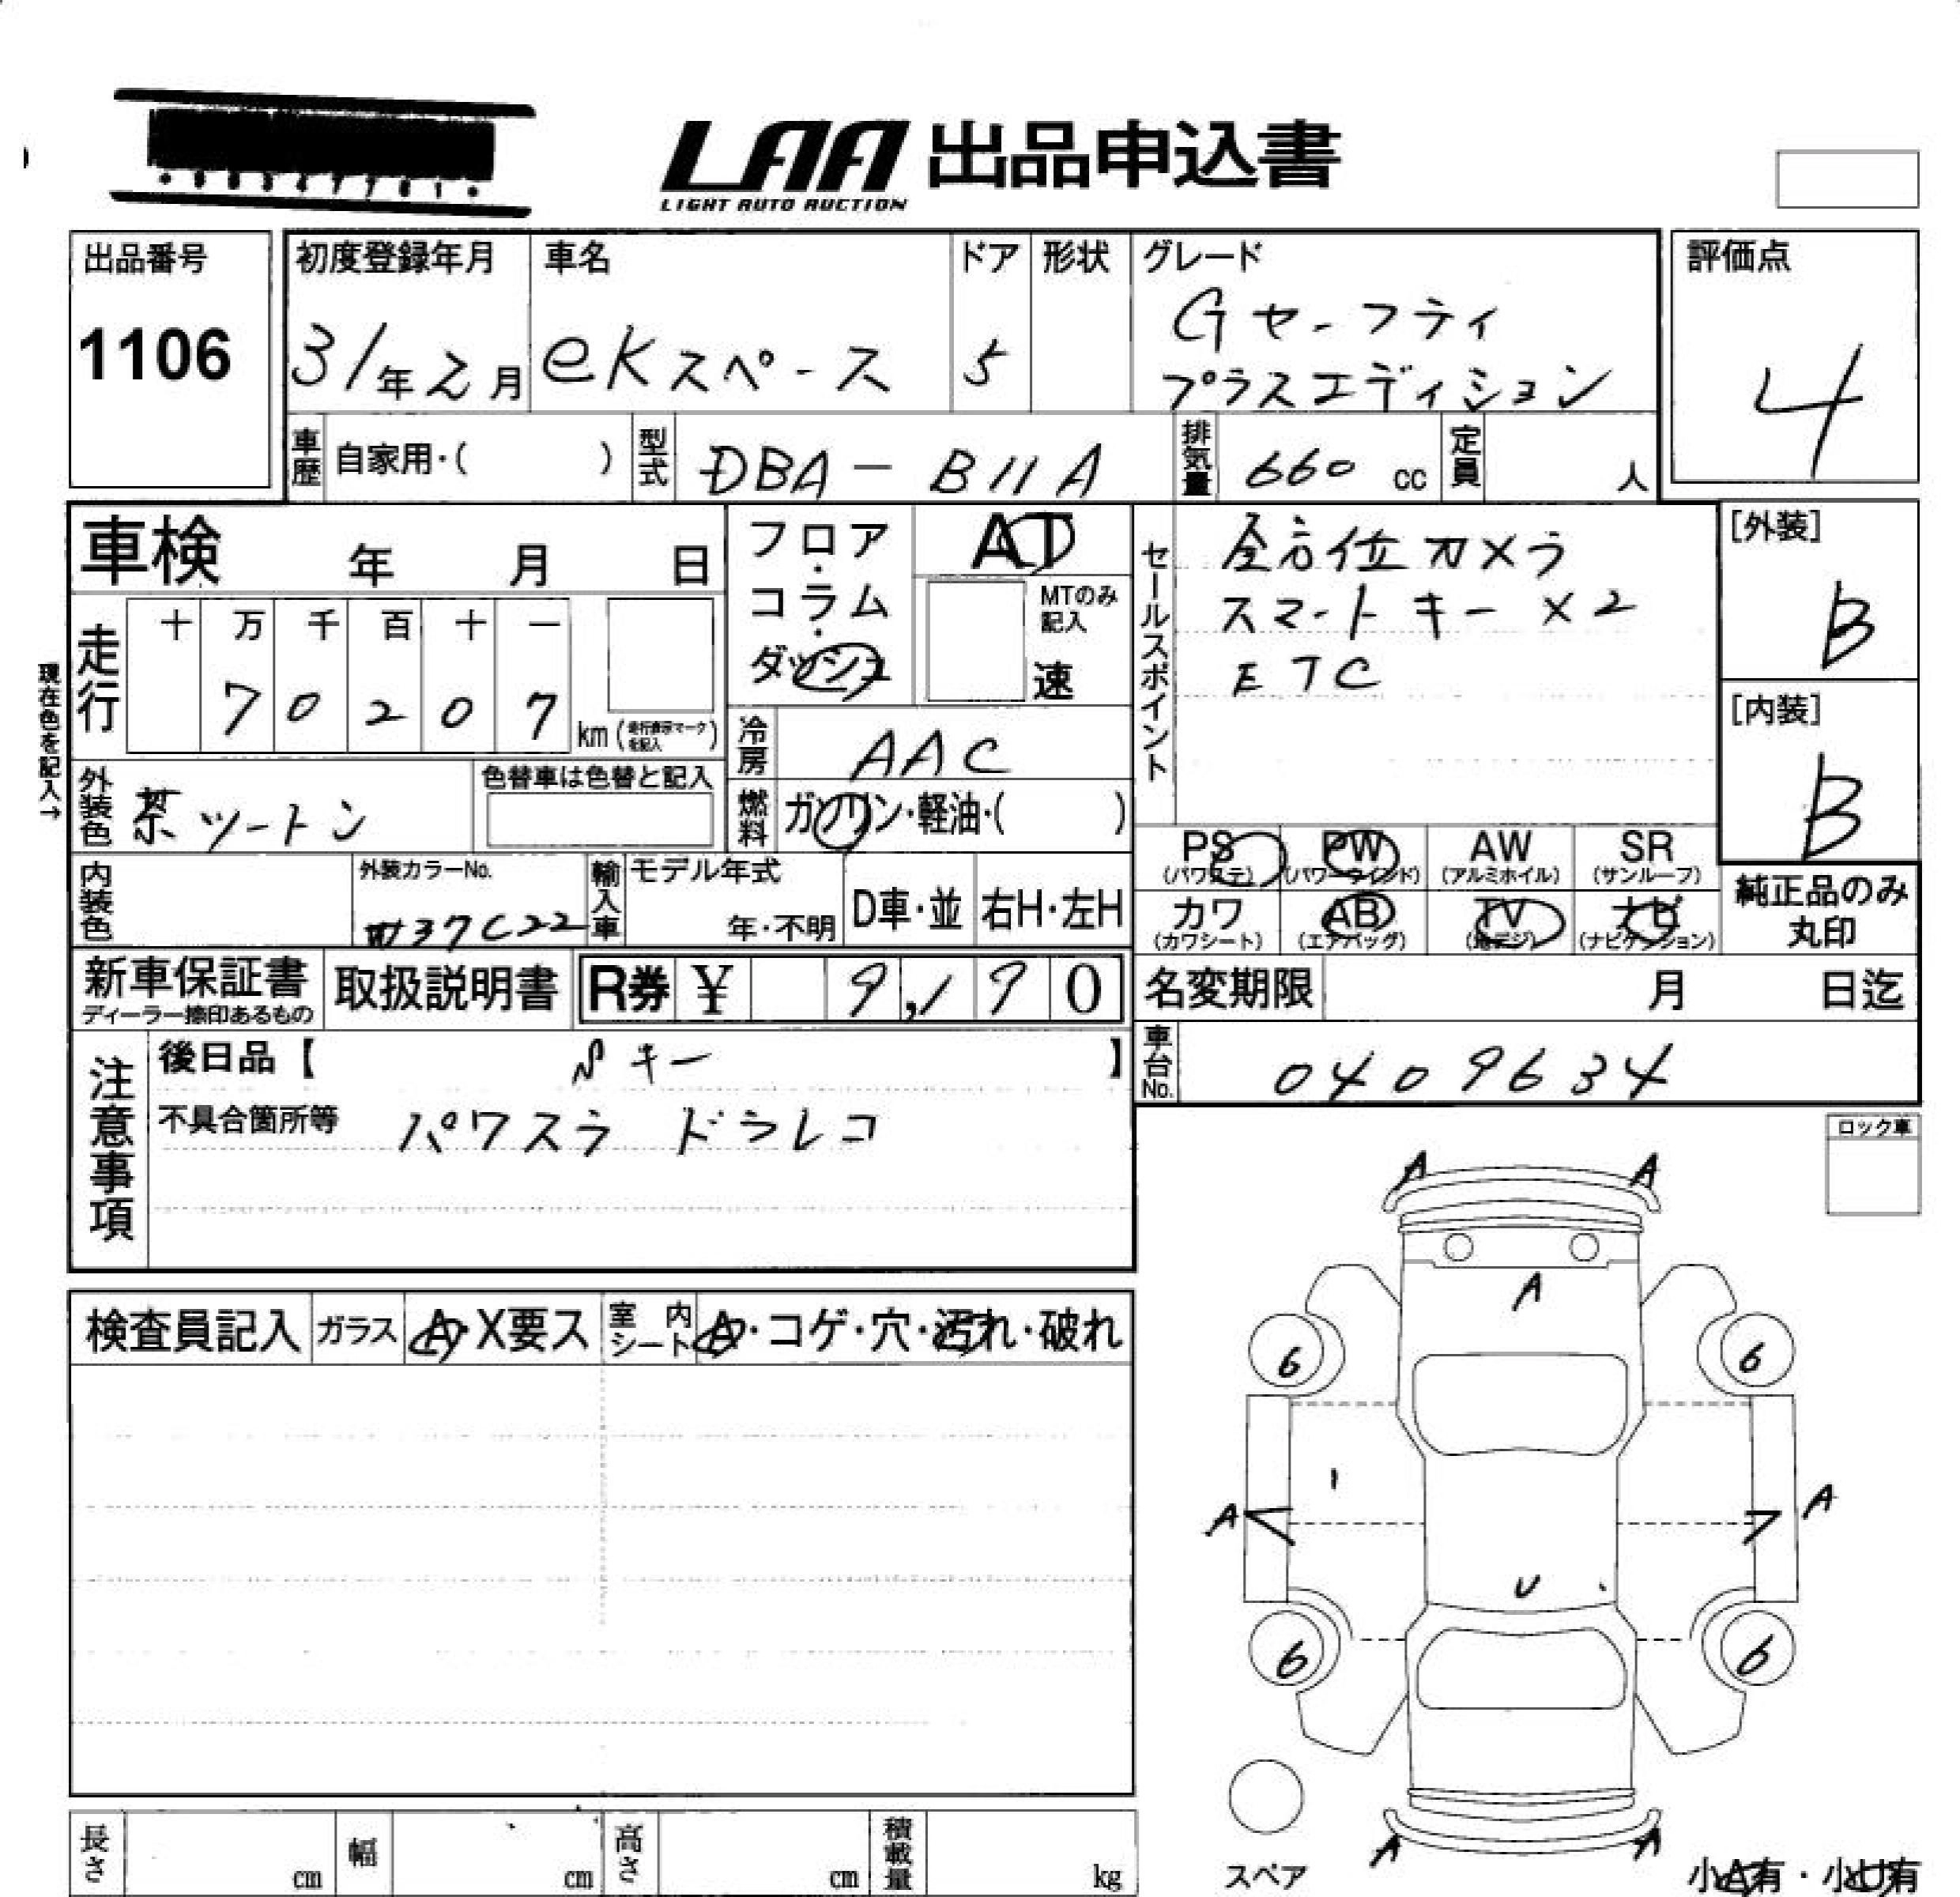 LAA 出品申込書
LIGHT AUTO AUCTION
出品番号
1106
初度登録年月
31年2月
車名
eKスペース
ドア
5
形状
グレード
Gセーフティ
プラスエディション
評価点
4
車歴
自家用・( )
型式
DBA-B11A
排気量
660 cc
定員
人
車検 年 月 日
フロア・コラム・ダッシュ
AT
MTのみ記入
速
走行
十 万 千 百 十 一
7 0 2 0 7
km(走行表示マークを記入)
現在色を記入→
冷房
AAC
燃料
ガソリン・軽油・( )
外装色
茶ツートン
色替車は色替と記入
内装色
外装カラーNo.
W37C22
輸入車
モデル年式
年・不明
D車・並
右H・左H
セールスポイント
全方位カメラ
スマートキー×2
ETC
[外装]
B
[内装]
B
PS (パワステ)
PW (パワーウインド)
AW (アルミホイル)
SR (サンルーフ)
カワ (カワシート)
AB (エアバッグ)
TV (地デジ)
ナビ (ナビゲーション)
純正品のみ丸印
新車保証書
ディーラー捺印あるもの
取扱説明書
R券 ¥ 9,190
名変期限 月 日迄
車台No.
0409634
注意事項
後日品【 Sキー 】
不具合箇所等 パワスラ ドラレコ
ロック車
検査員記入
ガラス
A・X要ス
室内シート
A・コゲ・穴・汚れ・破れ
A A
A
6 6
A A
U
6 6
A A
スペア
小A有・小U有
長さ cm
幅 cm
高さ cm
積載量 kg